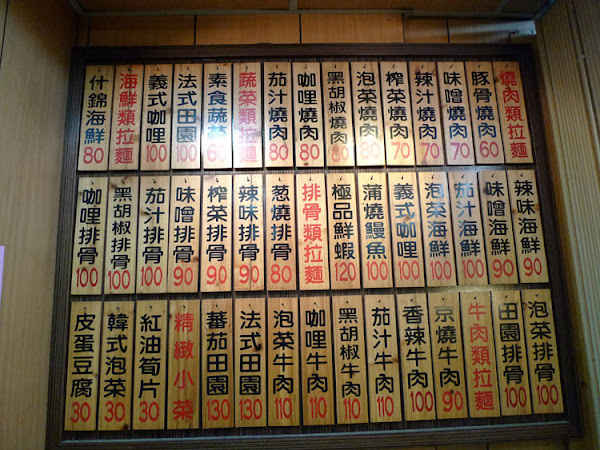 燒肉類拉麵
豚骨燒肉 60
味噌燒肉 70
辣汁燒肉 70
榨菜燒肉 70
泡菜燒肉 80
黑胡椒燒肉 80
咖哩燒肉 80
茄汁燒肉 80
蔬菜類拉麵
素食蔬菜 60
法式田園 100
義式咖哩 100
海鮮類拉麵
什錦海鮮 80
辣味海鮮 90
味噌海鮮 90
茄汁海鮮 100
泡菜海鮮 100
義式咖哩 100
蒲燒鰻魚 100
極品鮮蝦 120
排骨類拉麵
葱燒排骨 80
辣味排骨 90
榨菜排骨 90
味噌排骨 90
茄汁排骨 100
黑胡椒排骨 100
咖哩排骨 100
泡菜排骨 100
田園排骨 100
牛肉類拉麵
京燒牛肉 90
香辣牛肉 100
茄汁牛肉 110
黑胡椒牛肉 110
咖哩牛肉 110
泡菜牛肉 110
法式田園 130
蕃茄田園 130
精緻小菜
紅油筍片 30
韓式泡菜 30
皮蛋豆腐 30